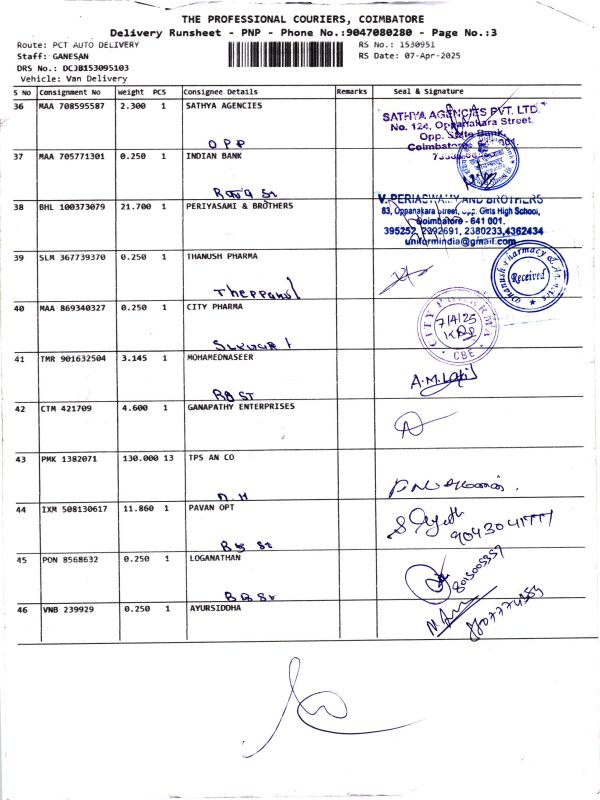 THE PROFESSIONAL COURIERS, COIMBATORE
Delivery Runsheet - PNP - Phone No.:9047080280 - Page No.:3
Route: PCT AUTO DELIVERY
RS No.: 1530951
Staff: GANESAN
RS Date: 07-Apr-2025
DRS No.: DCJB153095103
Vehicle: Van Delivery
S No Consignment No Weight PCS Consignee Details Remarks Seal & Signature
36 MAA 708595587 2.300 1 SATHYA AGENCIES
OPP
SATHYA AGENCIES PVT. LTD.
No. 124, Oppanakara Street,
Opp. State Bank,
37 MAA 705771301 0.250 1 INDIAN BANK
38 BHL 100373079 21.700 1 PERIYASAMI & BROTHERS
V.PERIASWAMY AND BROTHERS
83, Oppanakara Street, Opp. Girls High School,
Coimbatore - 641 001.
395252, 2392691, 2380233,4362434
uniformindia@gmail.com
39 SLM 367739370 0.250 1 THANUSH PHARMA
Received
40 MAA 869340327 0.250 1 CITY PHARMA
CITY PHARMA
7/4/25
CBE
41 TMR 901632504 3.145 1 MOHAMEDNASEER
RB ST
42 CTM 421709 4.600 1 GANAPATHY ENTERPRISES
43 PMK 1382071 130.000 13 TPS AN CO
44 IXM 508130617 11.860 1 PAVAN OPT
45 PON 8568632 0.250 1 LOGANATHAN
46 VNB 239929 0.250 1 AYURSIDDHA